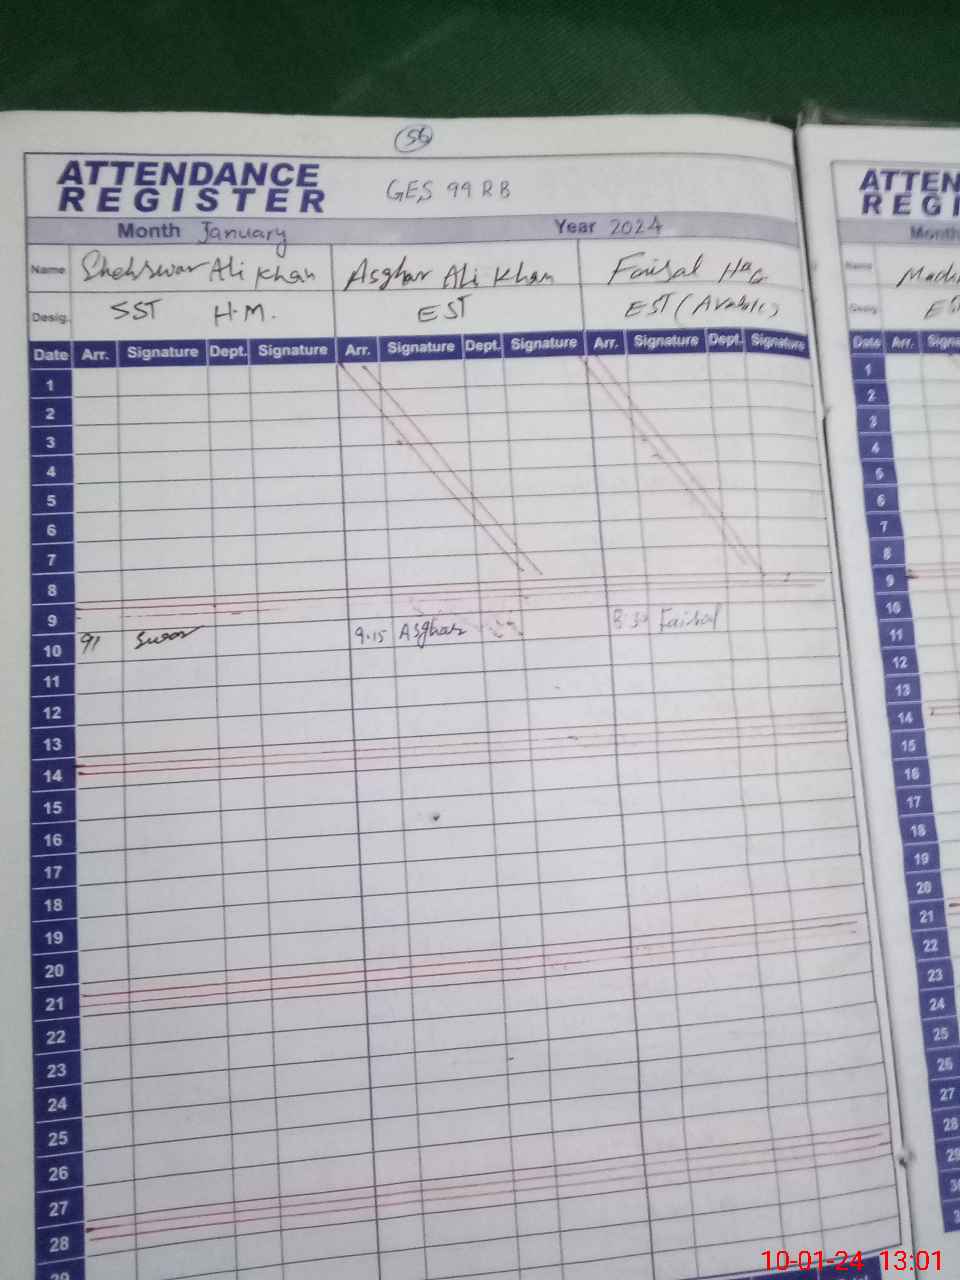 56
ATTENDANCE
REGISTER
GES 99 RB
Month January Year 2024
Name Shehswar Ali Khan Asghar Ali Khan Faisal
Desig. SST H.M. EST EST
Date Arr. Signature Dept. Signature Arr. Signature Dept. Signature Arr. Signature Dept. Signature
1
2
3
4
5
6
7
8
9
10 9.15 Asghar 8:30 Faisal
11
12
13
14
15
16
17
18
19
20
21
22
23
24
25
26
27
28
29
ATTEN
REGI
Month
Name
Desig.
Date Arr. Signa
1
2
3
4
5
6
7
8
9
10
11
12
13
14
15
16
17
18
19
20
21
22
23
24
25
26
27
28
29
10-01-24 13:01